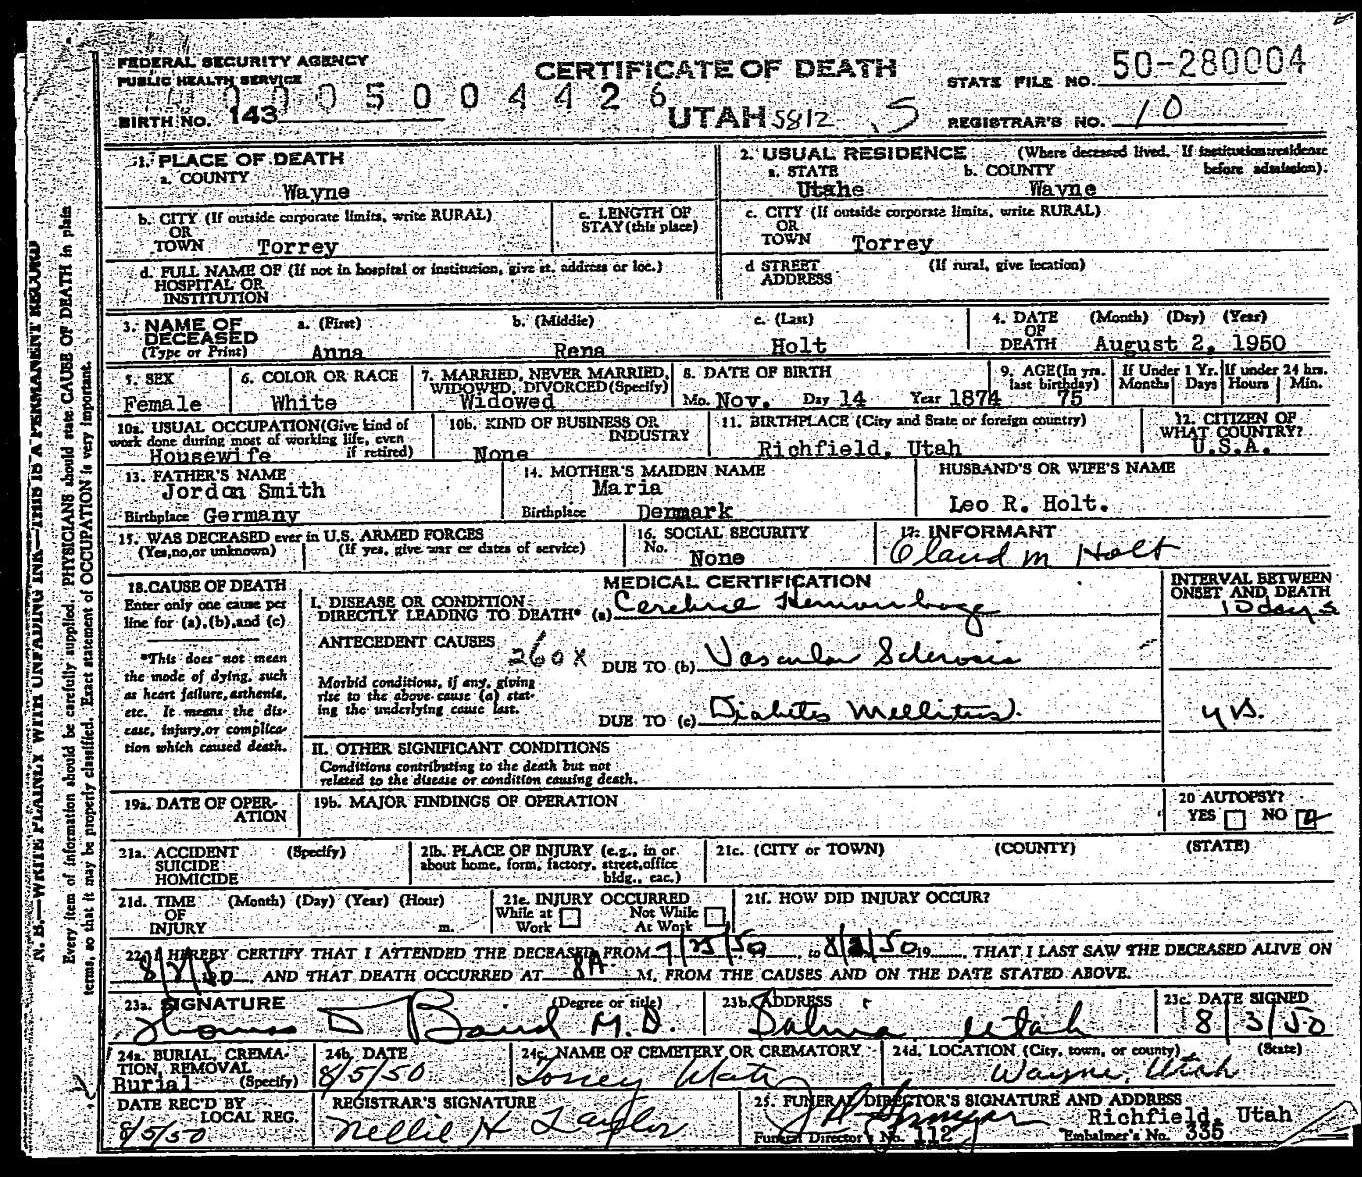 FEDERAL SECURITY AGENCY
PUBLIC HEALTH SERVICE
CERTIFICATE OF DEATH
STATE FILE NO. 50-280004
005004426
BIRTH NO. 143
UTAH 5812 .5
REGISTRAR'S NO. 10
N. B.—WRITE PLAINLY WITH UNFADING INK—THIS IS A PERMANENT RECORD
Every item of information should be carefully supplied. PHYSICIANS should state CAUSE OF DEATH in plain
terms, so that it may be properly classified. Exact statement of OCCUPATION is very important.
1. PLACE OF DEATH
a. COUNTY
Wayne
2. USUAL RESIDENCE (Where deceased lived. If institution: residence
before admission).
a. STATE b. COUNTY
Utahe Wayne
b. CITY (If outside corporate limits, write RURAL)
OR
TOWN Torrey
c. LENGTH OF
STAY (this place)
c. CITY (If outside corporate limits, write RURAL)
OR
TOWN Torrey
d. FULL NAME OF (If not in hospital or institution, give st. address or loc.)
HOSPITAL OR
INSTITUTION
d STREET (If rural, give location)
ADDRESS
3. NAME OF
DECEASED
(Type or Print)
a. (First) b. (Middle) c. (Last)
Anna Rena Holt
4. DATE (Month) (Day) (Year)
OF
DEATH August 2, 1950
5. SEX
Female
6. COLOR OR RACE
White
7. MARRIED, NEVER MARRIED,
WIDOWED, DIVORCED (Specify)
Widowed
8. DATE OF BIRTH
Mo. Nov. Day 14 Year 1874
9. AGE (In yrs.
last birthday)
75
If Under 1 Yr.
Months Days
If under 24 hrs.
Hours Min.
10a. USUAL OCCUPATION (Give kind of
work done during most of working life, even
if retired)
Housewife
10b. KIND OF BUSINESS OR
INDUSTRY
None
11. BIRTHPLACE (City and State or foreign country)
Richfield, Utah
12. CITIZEN OF
WHAT COUNTRY?
U.S.A.
13. FATHER'S NAME
Jordon Smith
Birthplace Germany
14. MOTHER'S MAIDEN NAME
Maria
Birthplace Denmark
HUSBAND'S OR WIFE'S NAME
Leo R. Holt.
15. WAS DECEASED ever in U.S. ARMED FORCES
(Yes, no, or unknown) (If yes, give war or dates of service)
16. SOCIAL SECURITY
No.
None
17. INFORMANT
Claud M Holt
18. CAUSE OF DEATH
Enter only one cause per
line for (a), (b), and (c)
*This does not mean
the mode of dying, such
as heart failure, asthenia,
etc. It means the dis-
ease, injury, or complica-
tion which caused death.
MEDICAL CERTIFICATION
INTERVAL BETWEEN
ONSET AND DEATH
I. DISEASE OR CONDITION
DIRECTLY LEADING TO DEATH* (a) Cerebral Hemorrhage
10 days
ANTECEDENT CAUSES
260X
DUE TO (b) Vascular Sclerosis
Morbid conditions, if any, giving
rise to the above cause (a) stat-
ing the underlying cause last.
DUE TO (c) Diabetes Mellitus.
II. OTHER SIGNIFICANT CONDITIONS
Conditions contributing to the death but not
related to the disease or condition causing death.
19a. DATE OF OPER-
ATION
19b. MAJOR FINDINGS OF OPERATION
20 AUTOPSY?
YES NO
21a. ACCIDENT (Specify)
SUICIDE
HOMICIDE
21b. PLACE OF INJURY (e.g., in or
about home, form, factory, street, office
bldg., eac.)
21c. (CITY or TOWN) (COUNTY) (STATE)
21d. TIME (Month) (Day) (Year) (Hour)
OF
INJURY m.
21e. INJURY OCCURRED
While at Not While
Work At Work
21f. HOW DID INJURY OCCUR?
22. I HEREBY CERTIFY THAT I ATTENDED THE DECEASED FROM 7/25/50 to 8/2/50 19 THAT I LAST SAW THE DECEASED ALIVE ON
8/2/50, AND THAT DEATH OCCURRED AT 8A M. FROM THE CAUSES AND ON THE DATE STATED ABOVE.
23a. SIGNATURE (Degree or title)
Thomas D Baird M.D.
23b. ADDRESS
Salina, Utah
23c. DATE SIGNED
8/3/50
24a. BURIAL, CREMA-
TION, REMOVAL
Burial (Specify)
24b. DATE
8/5/50
24c. NAME OF CEMETERY OR CREMATORY
Torrey
24d. LOCATION (City, town, or county) (State)
Wayne, Utah
DATE REC'D BY
LOCAL REG.
8/5/50
REGISTRAR'S SIGNATURE
Nellie H Taylor
25. FUNERAL DIRECTOR'S SIGNATURE AND ADDRESS
Richfield, Utah
Funeral Director's No. 112 Embalmer's No. 335